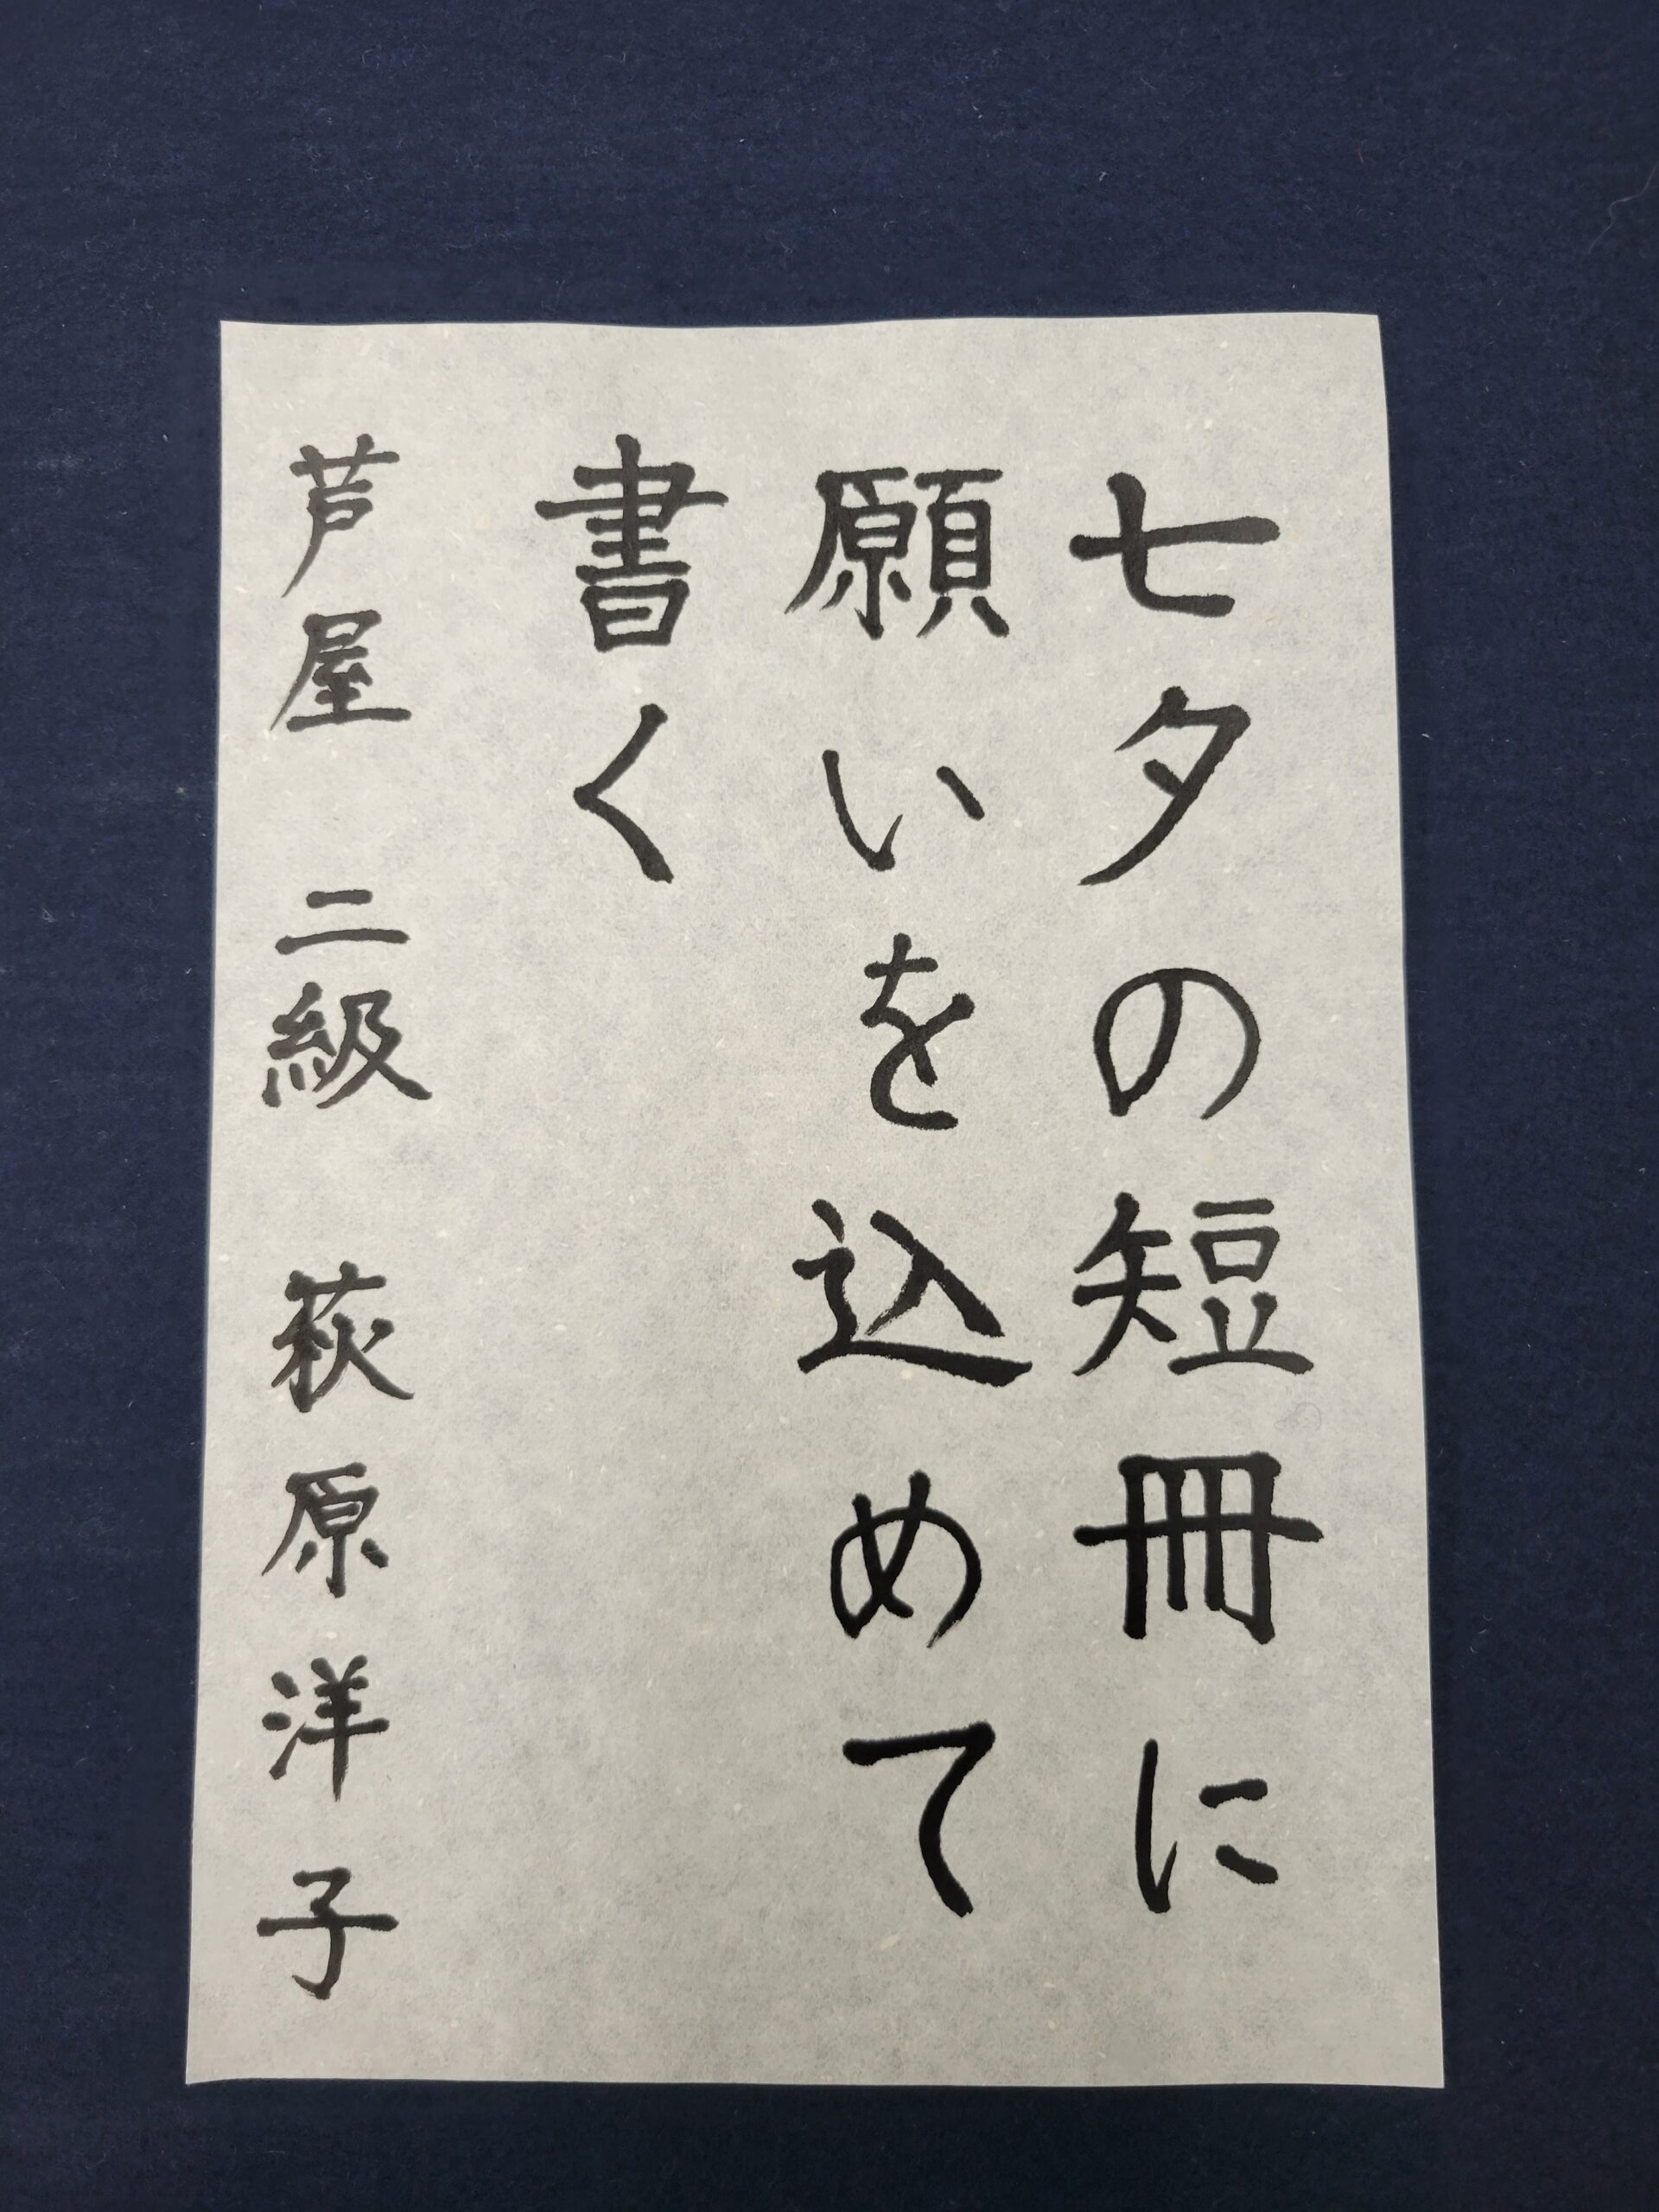 七夕の短冊に
願いを込めて
書く
芦屋 二級 荻原洋子